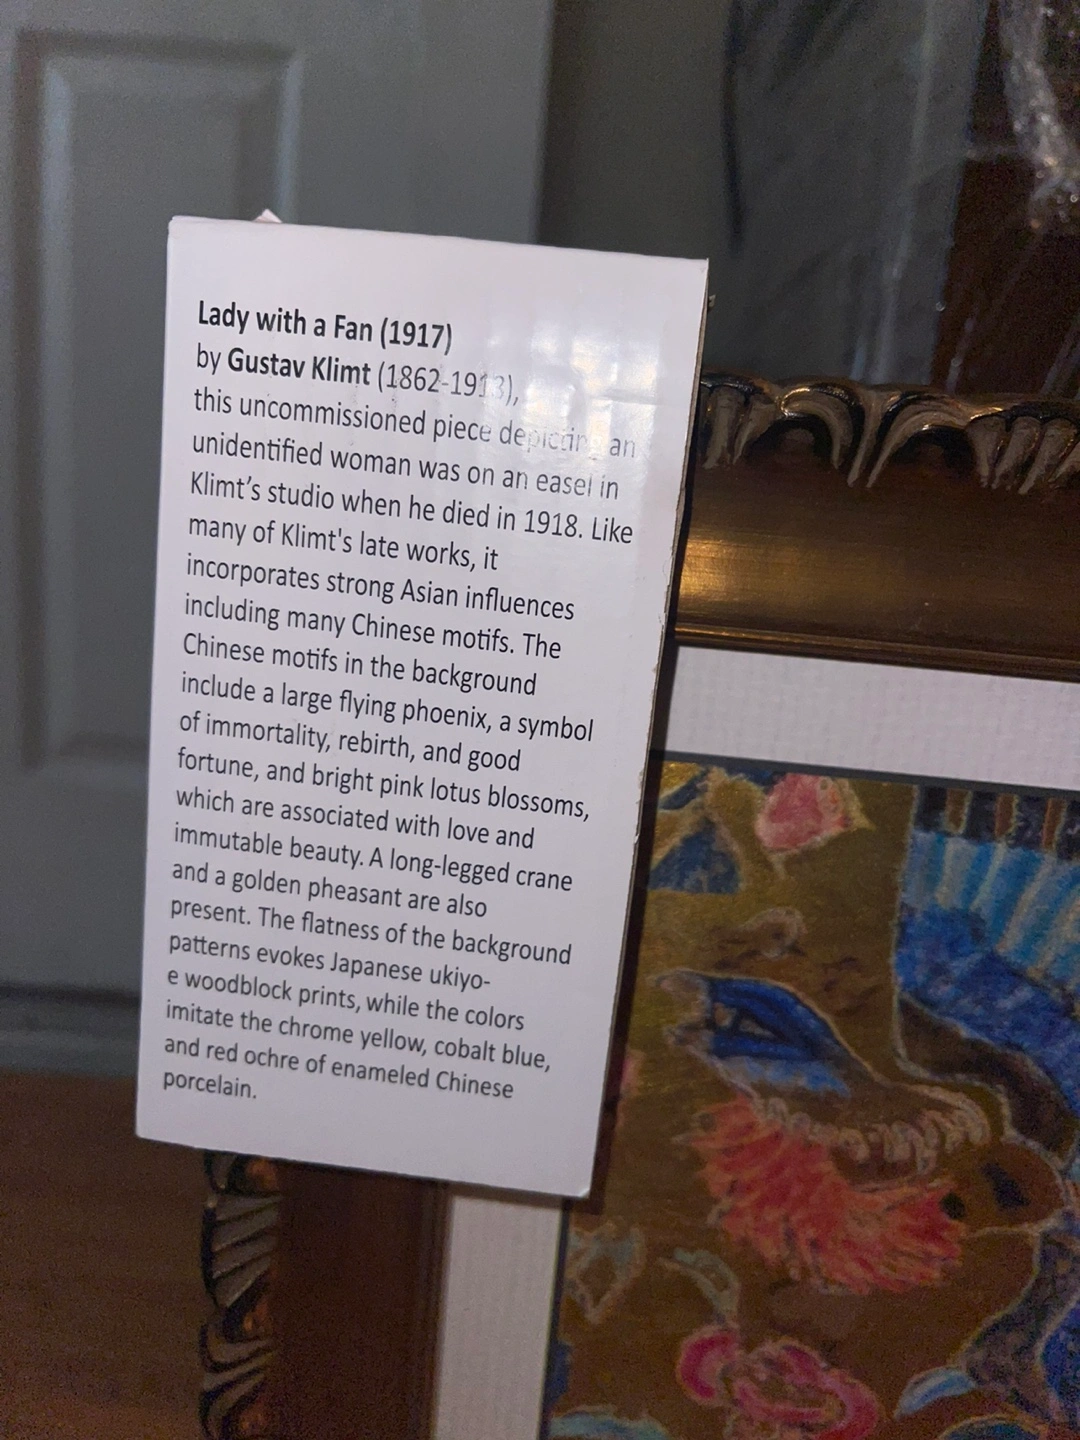 Lady with a Fan (1917)
by Gustav Klimt (1862-1913),
this uncommissioned piece depicting an
unidentified woman was on an easel in
Klimt’s studio when he died in 1918. Like
many of Klimt's late works, it
incorporates strong Asian influences
including many Chinese motifs. The
Chinese motifs in the background
include a large flying phoenix, a symbol
of immortality, rebirth, and good
fortune, and bright pink lotus blossoms,
which are associated with love and
immutable beauty. A long-legged crane
and a golden pheasant are also
present. The flatness of the background
patterns evokes Japanese ukiyo-
e woodblock prints, while the colors
imitate the chrome yellow, cobalt blue,
and red ochre of enameled Chinese
porcelain.